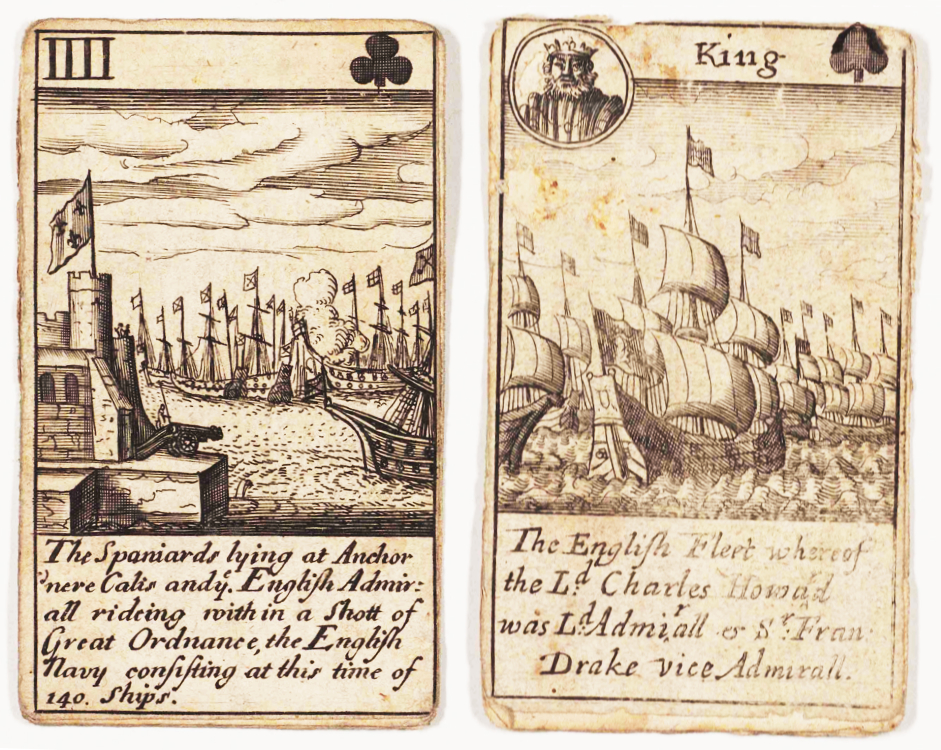 IIII
The Spaniards lying at Anchor
nere Calis and yᵉ. English Admir:
all rideing within a Shott of
Great Ordnance, the English
Navy consisting at this time of
140. Ships.
King
The English Fleet whereof
the Lᵈ. Charles Howaʳd
was Lᵈ. Admiʳall & Sʳ. Fran:
Drake vice Admirall.